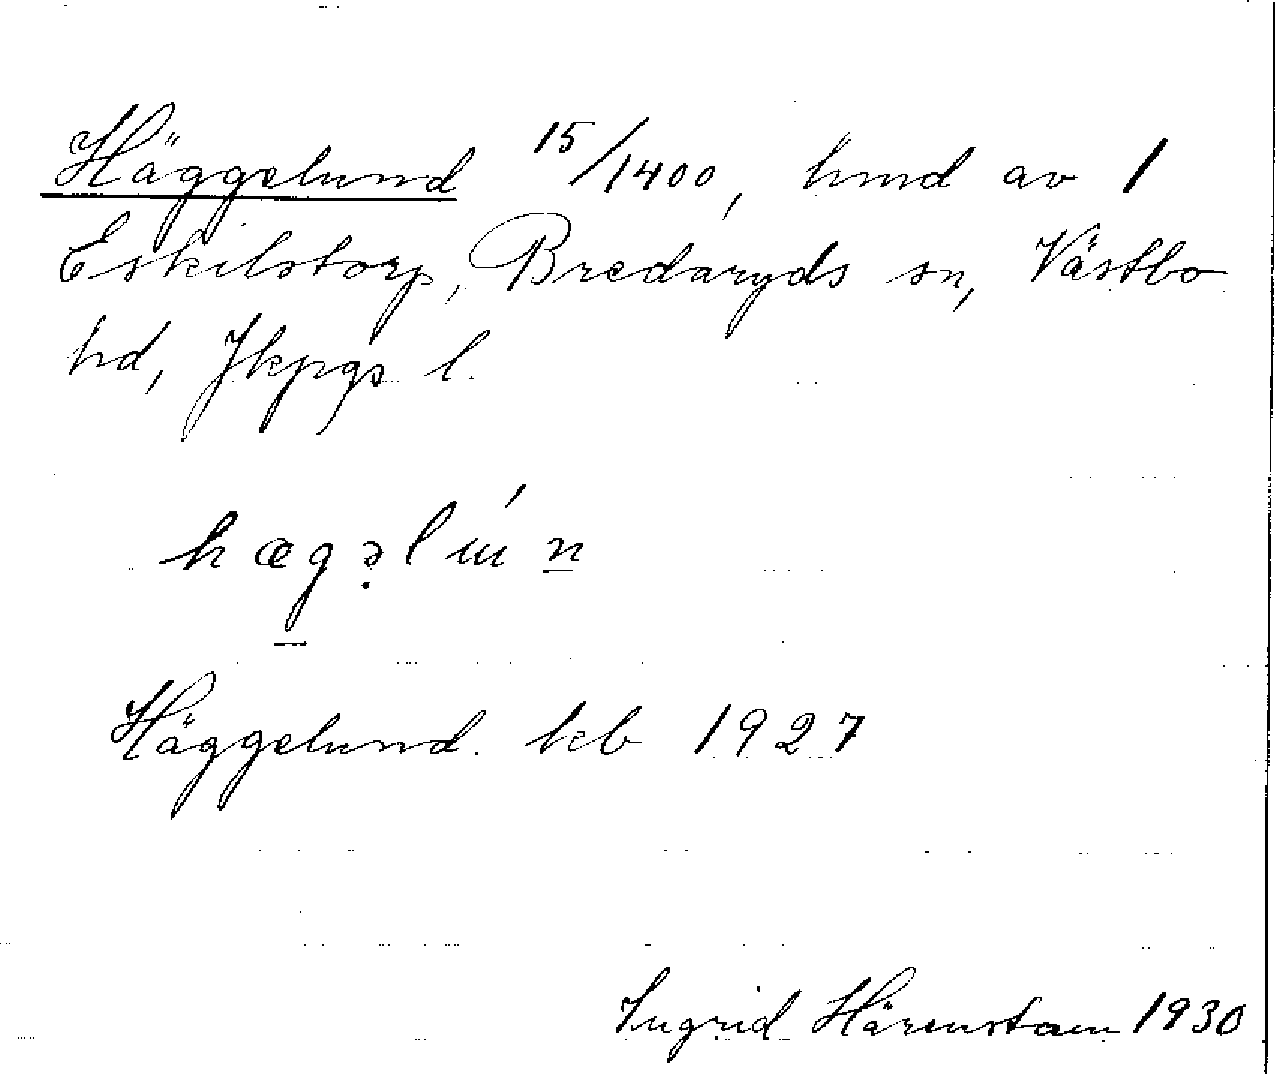 Häggelund 15/1400, hmd av 1
Eskilstorp, Bredaryds sn, Västbo
hd, Jkpgs l.
hægəlún
Häggelund kb 1927
Ingrid Härenstam 1930